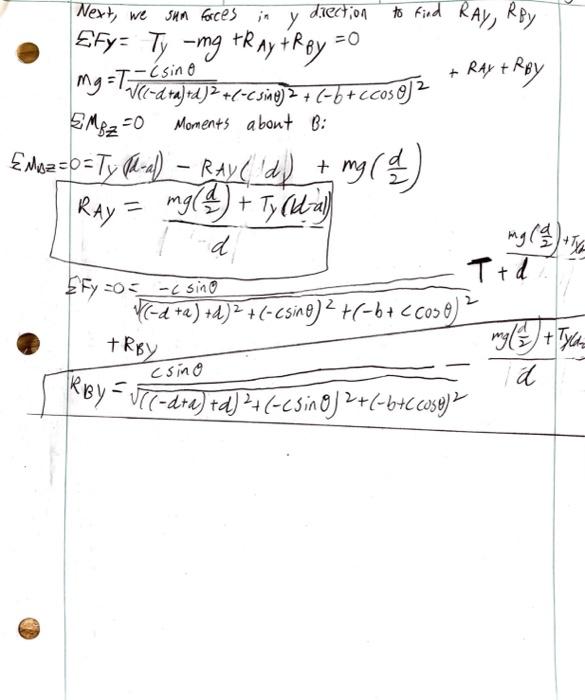 Next, we sum forces in y direction to find RAy, RBy
ΣFy= Ty -mg +RAy+RBy =0
mg=T -csinθ / √((-d+a)+d)2+(-csinθ)2+(-b+ccosθ)2 + RAy + RBy
ΣMBZ=0 Moments about B:
ΣMBZ=0=Ty(d-a) - RAy(d) + mg(d/2)
RAy = mg(d/2) + Ty(d-a) / d
ΣFy=0= -csinθ / √((-d+a)+d)2+(-csinθ)2+(-b+ccosθ)2 T + mg(d/2)+Ty / d
+RBy
RBy = csinθ / √((-d+a)+d)2+(-csinθ)2+(-b+ccosθ)2 - mg(d/2)+Ty(d- / d